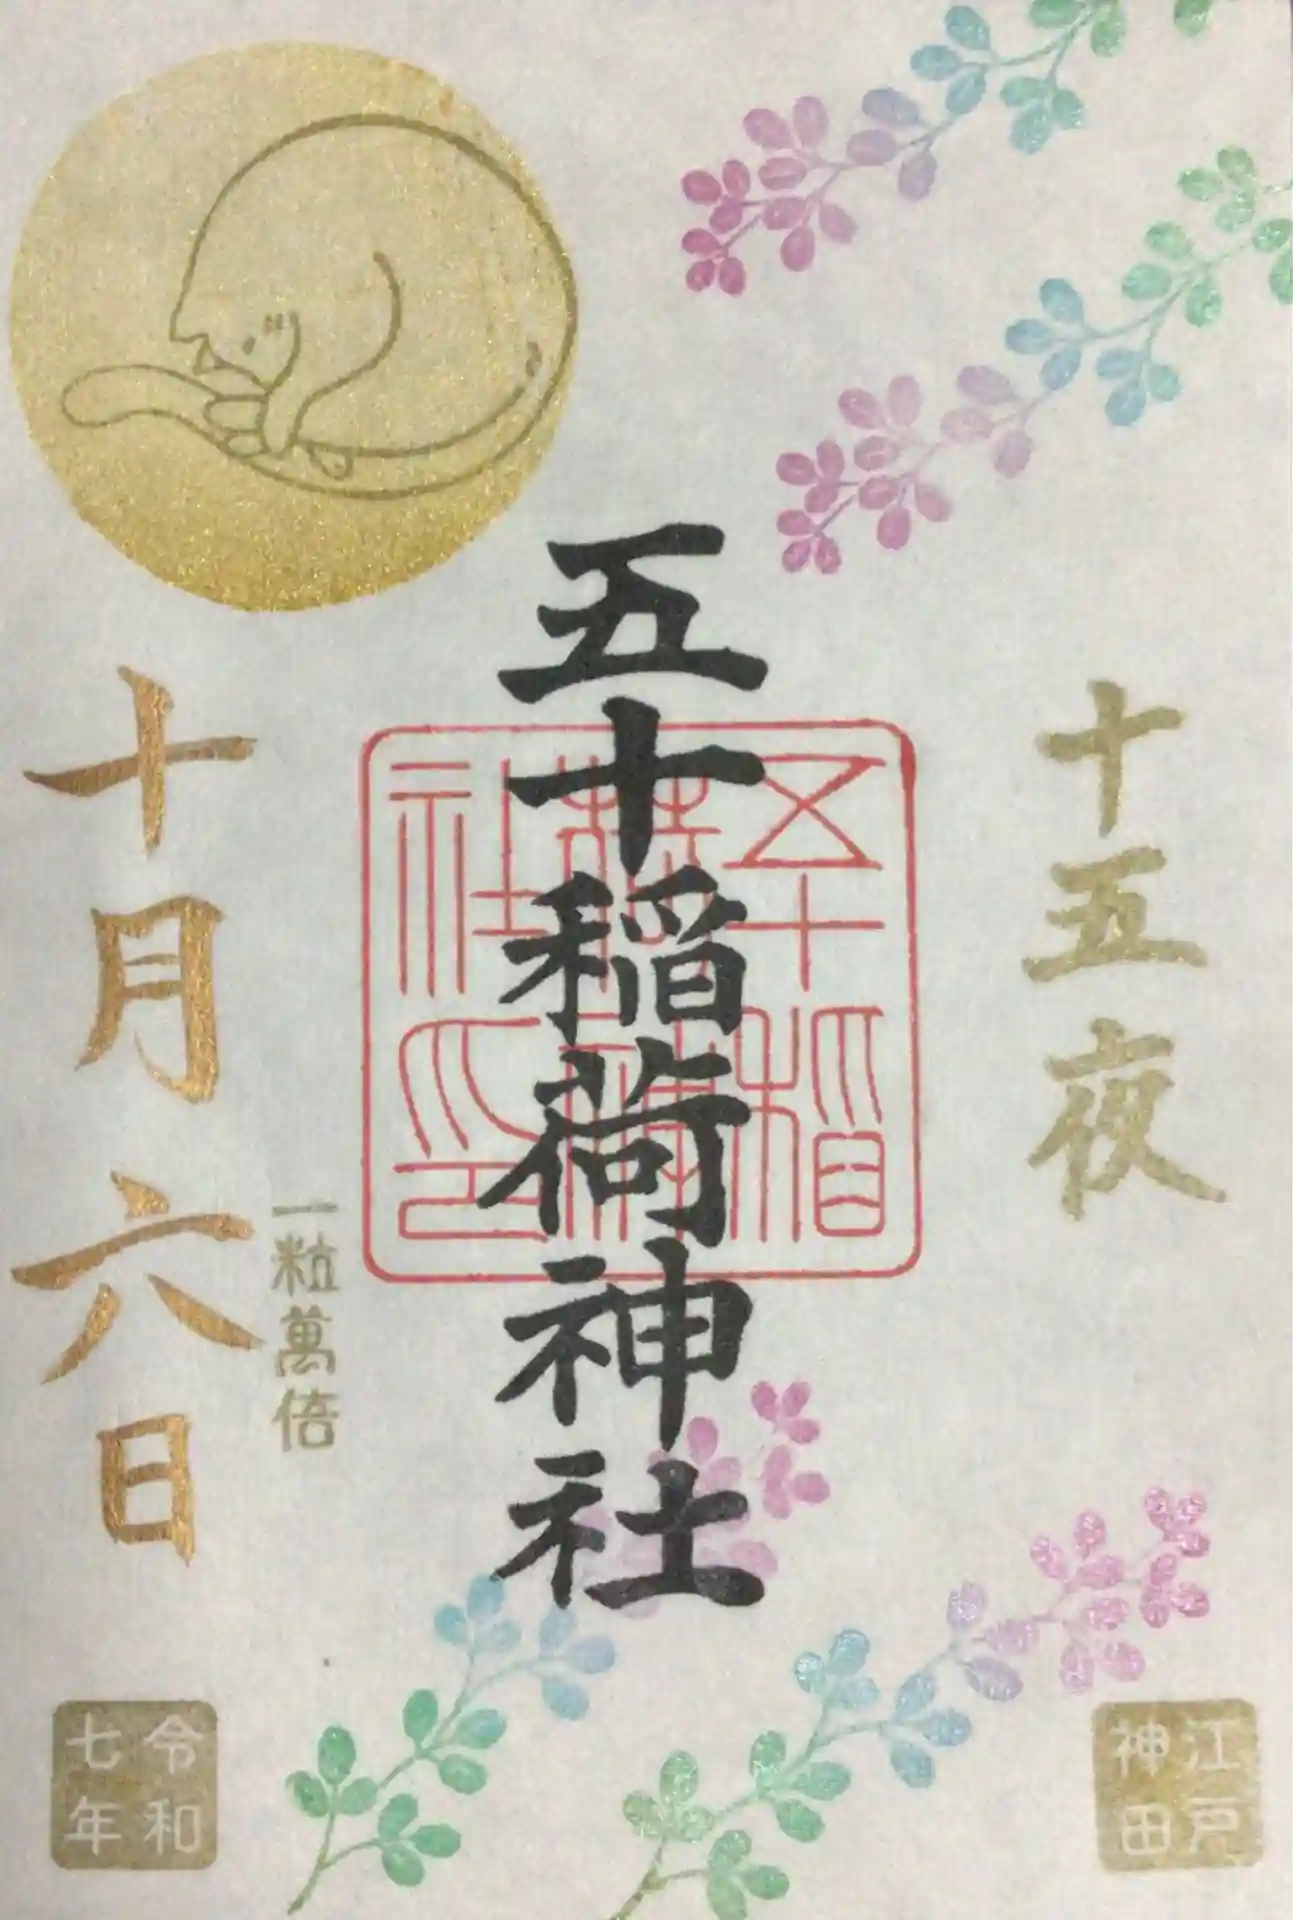 十五夜
五十稲荷神社
五十稲荷神社印
一粒萬倍
十月六日
江戸
神田
令和
七年